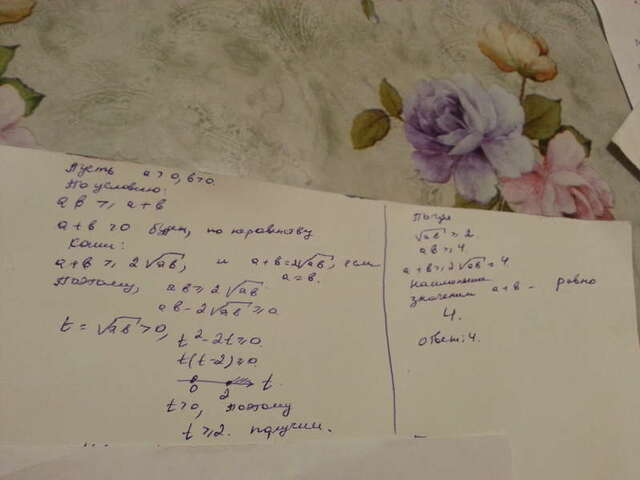 Пусть a>0, b>0.
По условию:
ab ≥ a+b
a+b>0 будет, по неравенству
Коши:
a+b ≥ 2√ab, и a+b=2√ab, если
a=b.
Поэтому, ab ≥ 2√ab
ab-2√ab ≥ 0.
t = √ab>0,
t²-2t ≥ 0.
t(t-2) ≥ 0
0 2 t.
t>0, поэтому
t ≥ 2. получим.
Тогда
√ab ≥ 2
ab ≥ 4.
a+b ≥ 2√ab = 4.
наименьшее
значение a+b - равно
4.
ответ: 4.